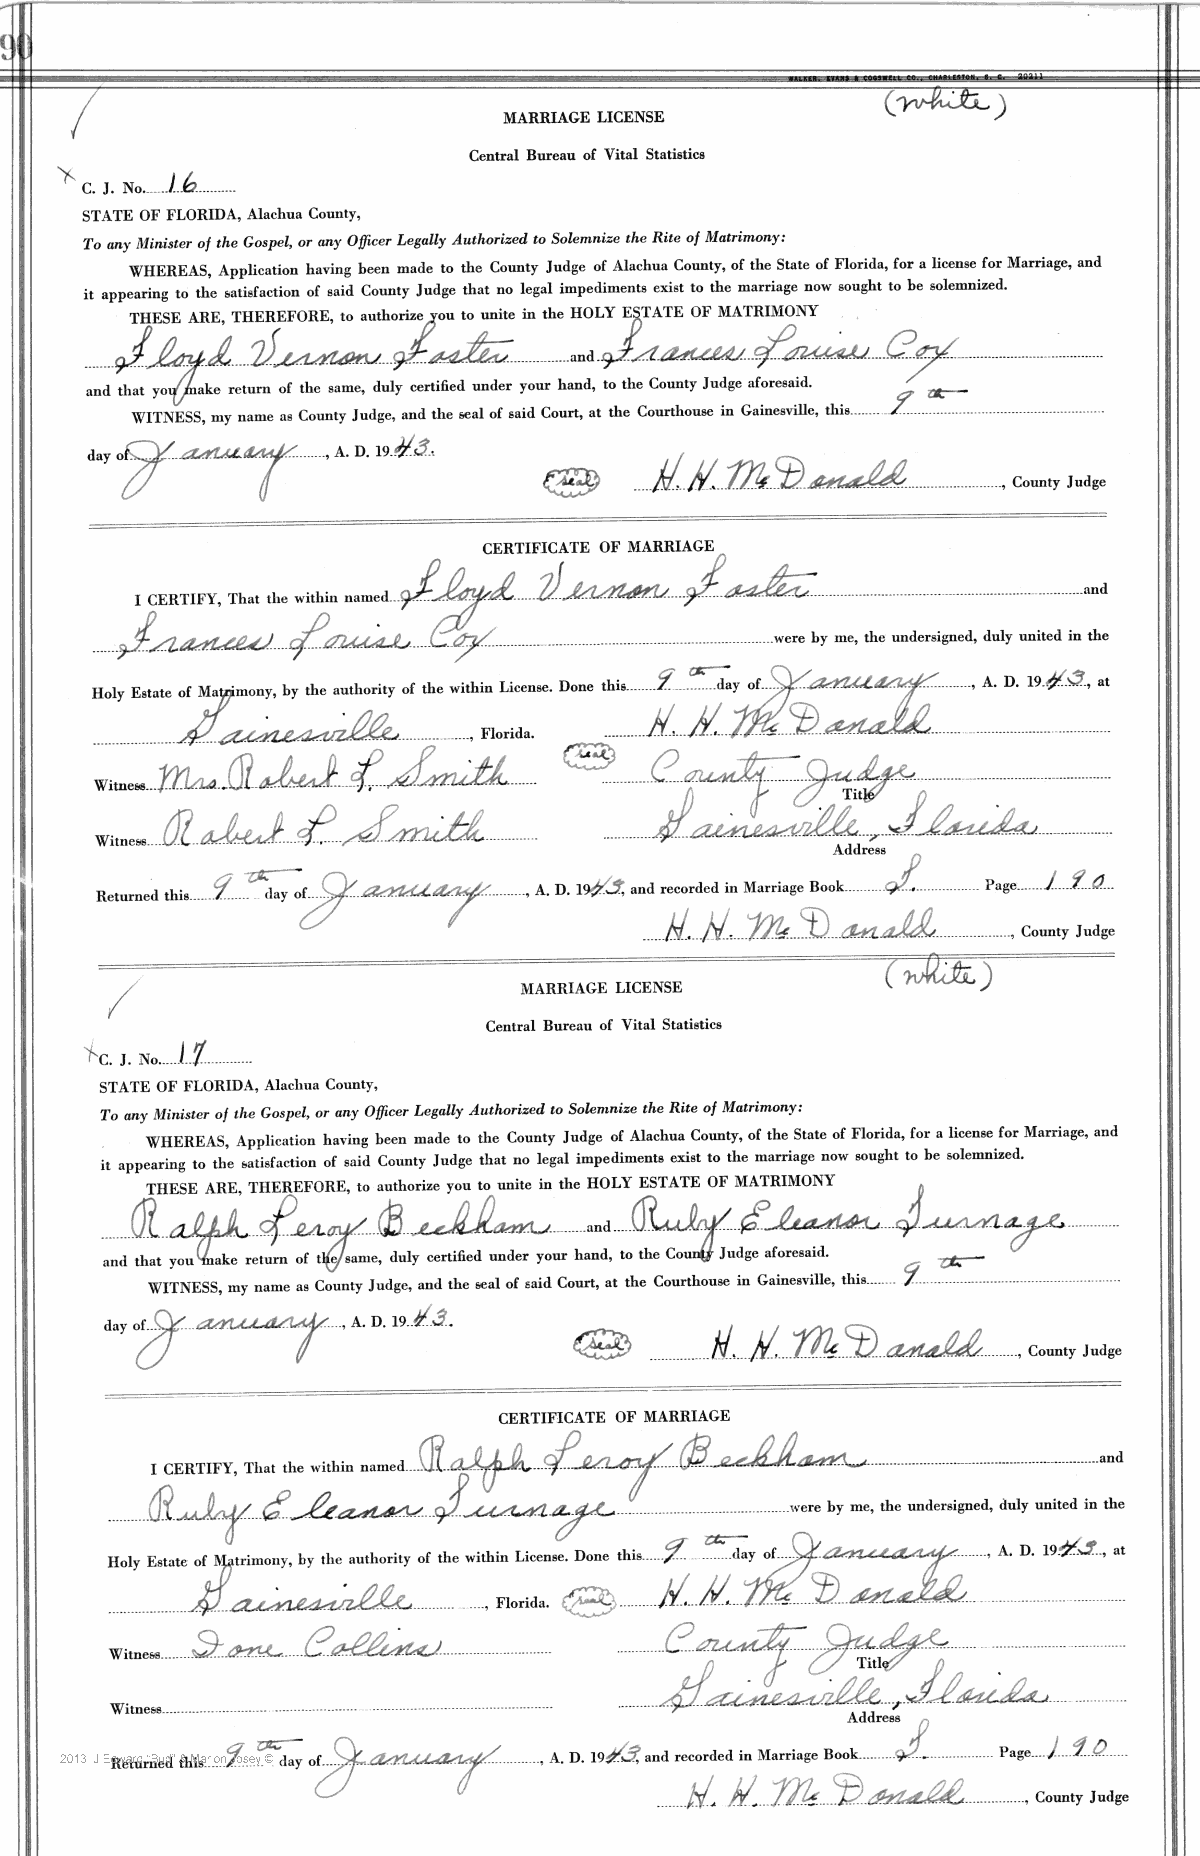 90
WALKER, EVANS & COGSWELL CO., CHARLESTON, S. C. 20211
(White)
MARRIAGE LICENSE
Central Bureau of Vital Statistics
x C. J. No. 16
STATE OF FLORIDA, Alachua County,
To any Minister of the Gospel, or any Officer Legally Authorized to Solemnize the Rite of Matrimony:
WHEREAS, Application having been made to the County Judge of Alachua County, of the State of Florida, for a license for Marriage, and
it appearing to the satisfaction of said County Judge that no legal impediments exist to the marriage now sought to be solemnized.
THESE ARE, THEREFORE, to authorize you to unite in the HOLY ESTATE OF MATRIMONY
Floyd Vernon Foster and Frances Louise Cox
and that you make return of the same, duly certified under your hand, to the County Judge aforesaid.
WITNESS, my name as County Judge, and the seal of said Court, at the Courthouse in Gainesville, this 9th
day of January, A. D. 1943.
seal H. H. McDonald, County Judge
CERTIFICATE OF MARRIAGE
I CERTIFY, That the within named Floyd Vernon Foster and
Frances Louise Cox were by me, the undersigned, duly united in the
Holy Estate of Matrimony, by the authority of the within License. Done this 9th day of January, A. D. 1943, at
Gainesville, Florida. H. H. McDonald
seal
Witness Mrs. Robert L. Smith County Judge
Title
Witness Robert L. Smith Gainesville, Florida
Address
Returned this 9th day of January, A. D. 1943, and recorded in Marriage Book S. Page 190
H. H. McDonald, County Judge
(White)
MARRIAGE LICENSE
Central Bureau of Vital Statistics
x C. J. No. 17
STATE OF FLORIDA, Alachua County,
To any Minister of the Gospel, or any Officer Legally Authorized to Solemnize the Rite of Matrimony:
WHEREAS, Application having been made to the County Judge of Alachua County, of the State of Florida, for a license for Marriage, and
it appearing to the satisfaction of said County Judge that no legal impediments exist to the marriage now sought to be solemnized.
THESE ARE, THEREFORE, to authorize you to unite in the HOLY ESTATE OF MATRIMONY
Ralph Leroy Beckham and Ruby Eleanor Turnage
and that you make return of the same, duly certified under your hand, to the County Judge aforesaid.
WITNESS, my name as County Judge, and the seal of said Court, at the Courthouse in Gainesville, this 9th
day of January, A. D. 1943.
seal H. H. McDonald, County Judge
CERTIFICATE OF MARRIAGE
I CERTIFY, That the within named Ralph Leroy Beckham and
Ruby Eleanor Turnage were by me, the undersigned, duly united in the
Holy Estate of Matrimony, by the authority of the within License. Done this 9th day of January, A. D. 1943, at
Gainesville, Florida. seal H. H. McDonald
Witness Ione Collins County Judge
Title
Witness Gainesville, Florida
Address
2013 J Edward "Bud" & Marion Josey ©
Returned this 9th day of January, A. D. 1943, and recorded in Marriage Book S. Page 190
H. H. McDonald, County Judge